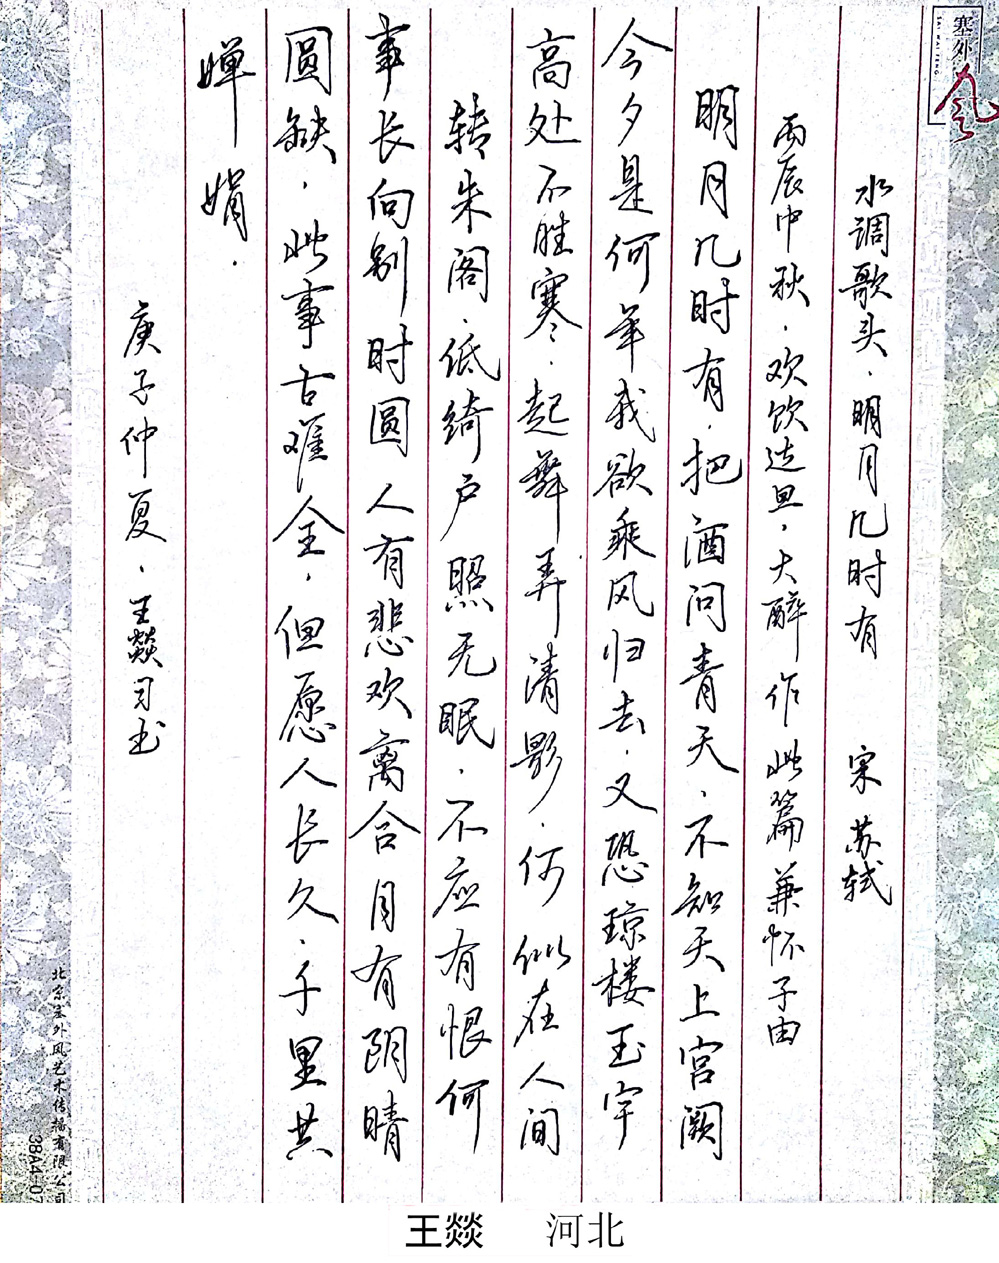 塞外风
水调歌头·明月几时有 宋 苏轼
丙辰中秋·欢饮达旦·大醉作此篇兼怀子由
明月几时有·把酒问青天·不知天上宫阙
今夕是何年我欲乘风归去·又恐琼楼玉宇
高处不胜寒·起舞弄清影·何似在人间
转朱阁·低绮户照无眠·不应有恨何
事长向别时圆人有悲欢离合月有阴晴
圆缺·此事古难全·但愿人长久·千里共
婵娟·
庚子仲夏·王燚习书
北京塞外风艺术传播有限公司
王燚 河北